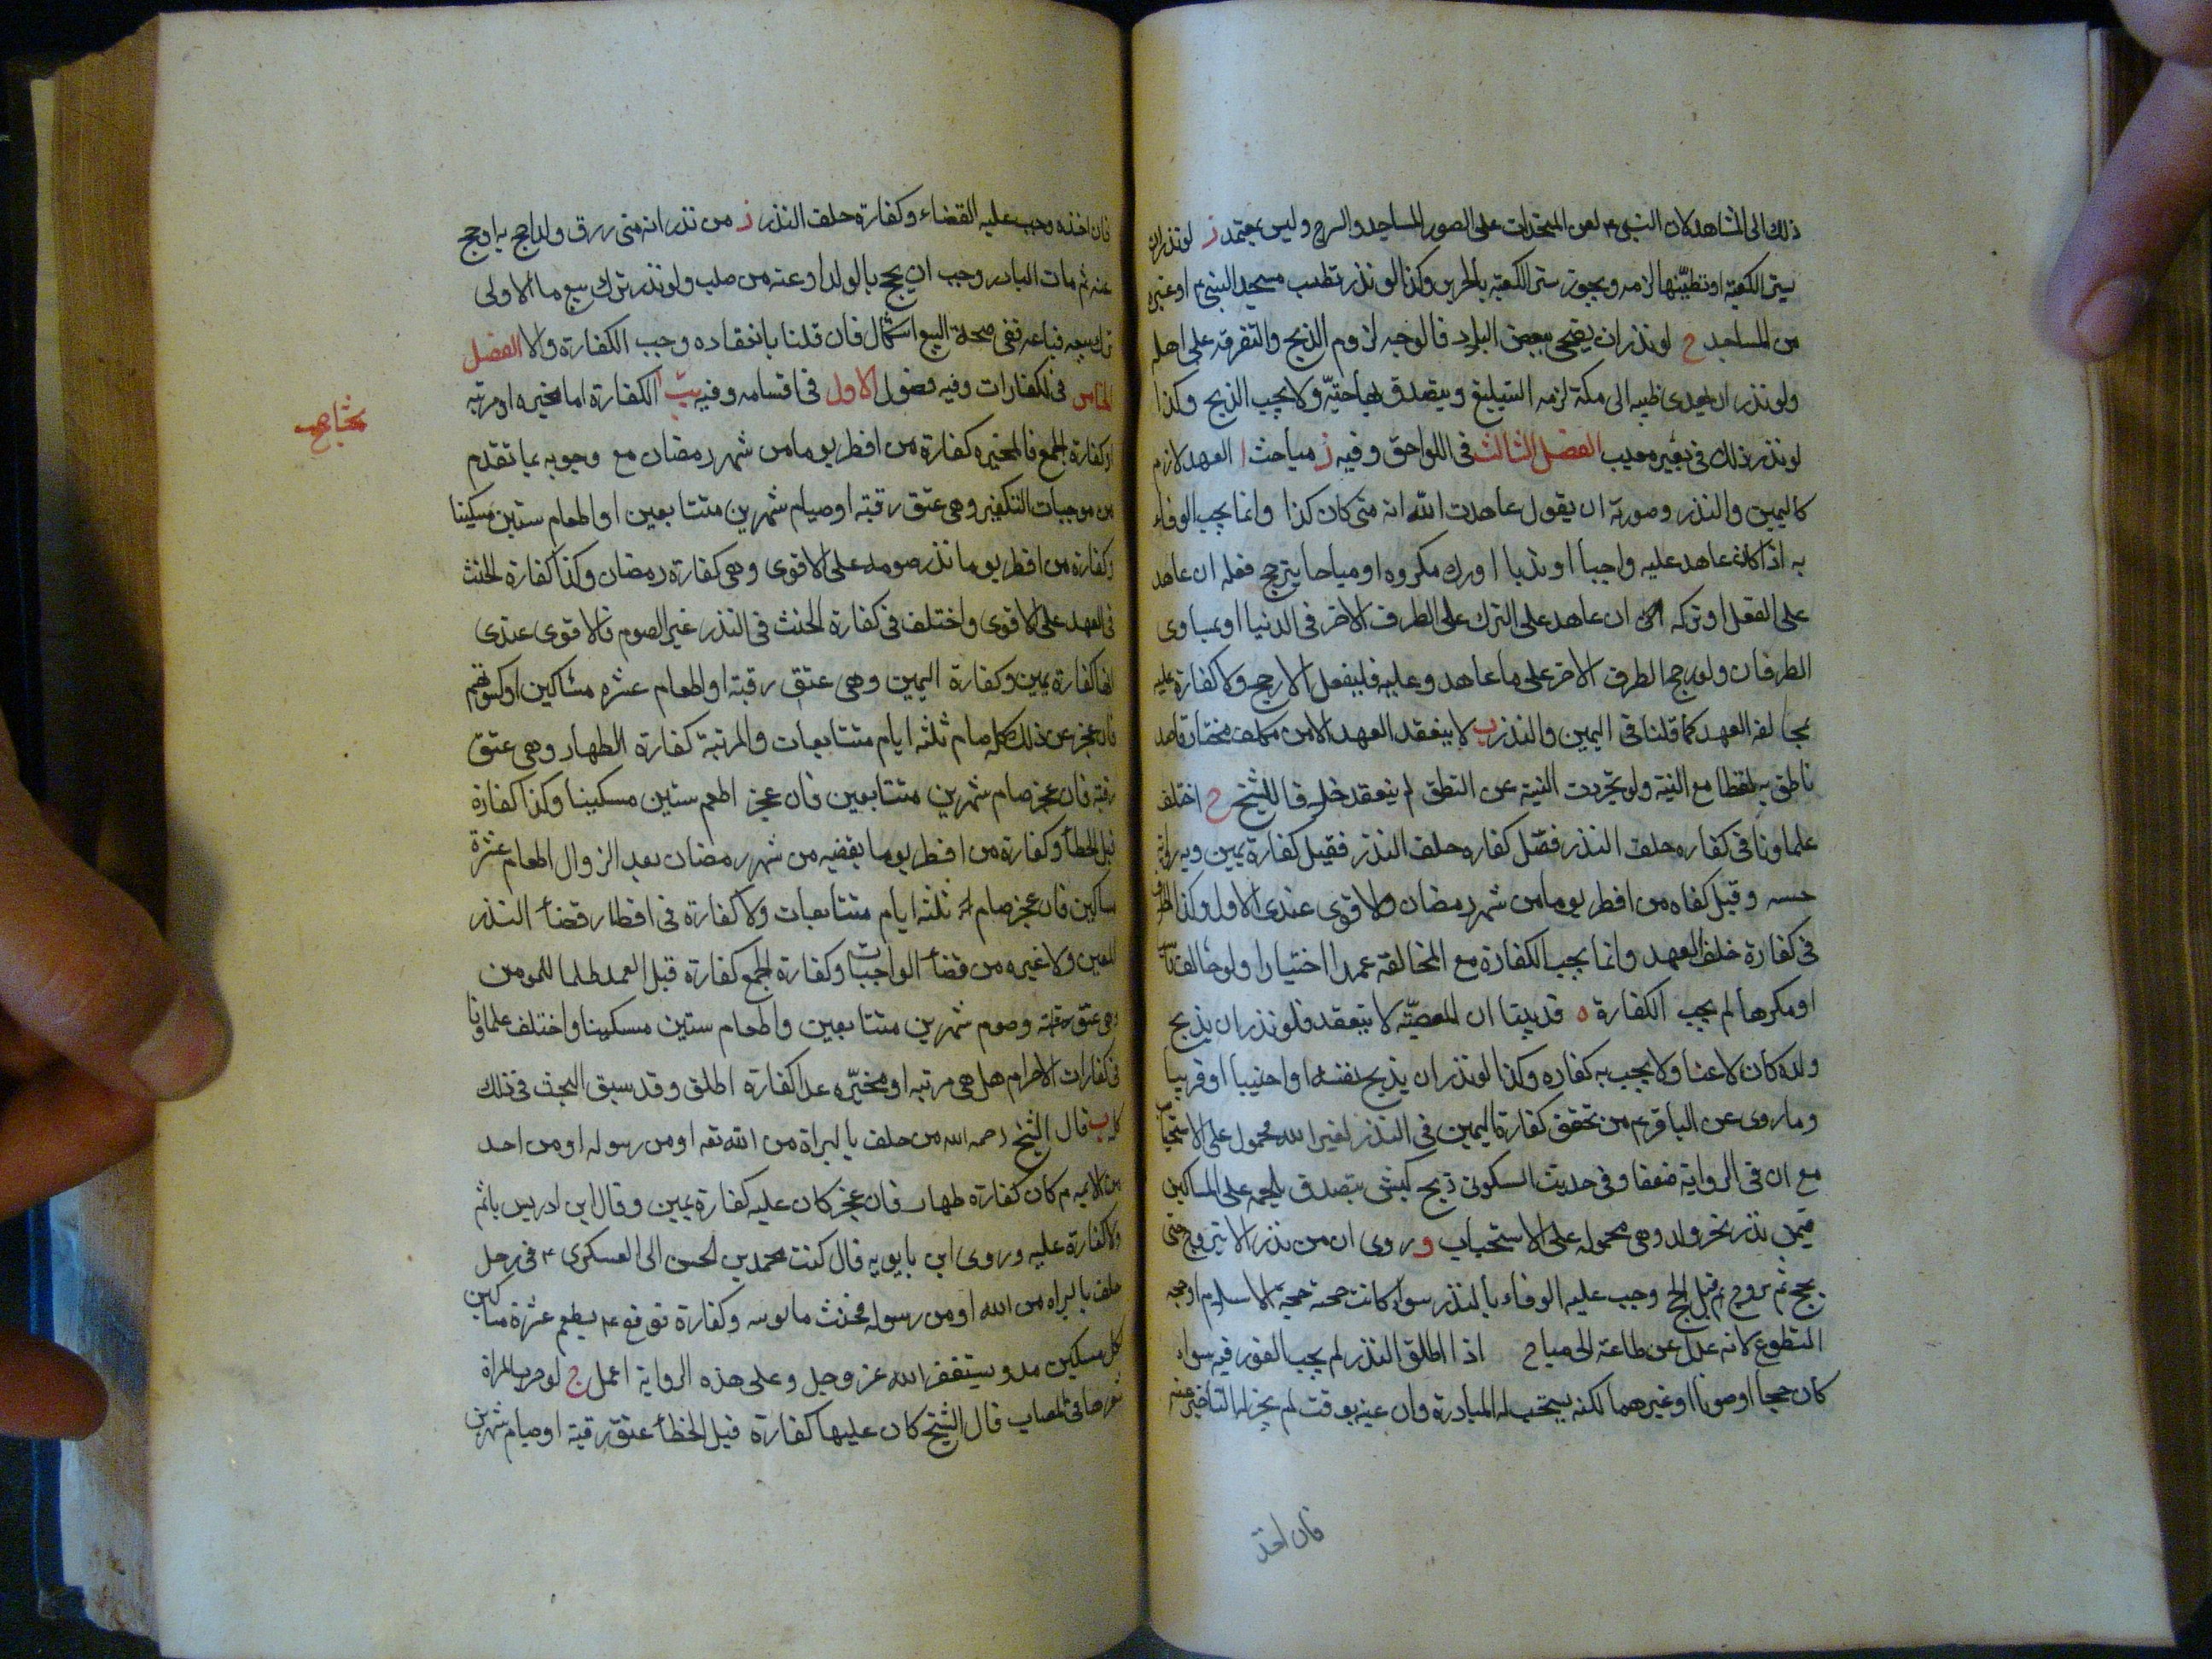 ذلك الى المشاهد لان النبي ع لعن المتخذات على الصور المساجد والسرج وليس بمعتمد ز لو نذر ان
يستر الكعبة او تطيينها لزمه ويجوز ستر الكعبة بالحرير وكذا لو نذر تطيب مسجد النبي ع او غيره
من المساجد ح لو نذر ان يضحى ببعض البلاد فالوجه لزوم الذبح والتفرقة على اهله
ولو نذر ان يهدى ظبيه الى مكة لزمه التبليغ ويتصدق بها حية ولا يجب الذبح وكذا
لو نذر ذلك في بعير معيب الفصل الثالث في اللواحق وفيه ز مباحث ا العهد لازم
كاليمين والنذر وصورته ان يقول عاهدت الله انه متى كان كذا وانما يجب الوفاء
به اذا كان عاهد عليه واجبا او ندبا او ترك مكروه او مباحا يترجح فعله ان عاهد
على الفعل او تركه ان عاهد على الترك على الطرف الاخر في الدنيا او يساوى
الطرفان ولو رجح الطرف الاخر على ما عاهد وعليه فليفعل الارجح ولا كفارة عليه
بمخالفة العهد كما قلنا في اليمين والنذر ب لا ينعقد العهد الا من مكلف مختار قاصد
ناطق به لفظا مع النية ولو تجردت النية عن النطق لم ينعقد قال الشيخ ح اختلف
علماونا في كفاره حلف النذر فقيل كفارة يمين وبه رواية
حسنه وقيل كفاه من افطر يوما من شهر رمضان والاقوى عندى الاول وكذا
في كفارة خلف العهد وانما يجب الكفارة مع المخالفة عمدا اختيارا ولو خالف ناسيا
او مكرها لم يجب الكفارة ه قد بينا ان المعصية لا تنعقد فلو نذر ان يذبح
ولده كان لاغيا ولا يجب به كفاره وكذا لو نذر ان يذبح نفسه او اجنبيا او قريبا
وما روى عن الباقر ع من تحقق كفارة اليمين في النذر لغير الله محمول على الاستحباب
مع ان في الرواية ضعفا وفي حديث السكونى ذبح كبش يتصدق بلحمه على المساكين
فيمن نذر نحر ولد وهى محموله على الاستحباب و روى ان من نذر الا يتزوج حتى
يحج ثم تزوج قبل الحج وجب عليه الوفاء بالنذر سواء كانت حجته حجة الاسلام او حجة
التطوع لانه عدل عن طاعة الى مباح اذا اطلق النذر لم يجب الفور فيه سواء
كان حجا او صوما او غيرهما لكنه يستحب له المبادرة وان عينه بوقت لم يجز له التأخير عنه
فان اخذ
فان اخذه وجب عليه القضاء وكفارة حلف النذر ز من نذر انه متى رزق ولدا حج به او حج
عنه ثم مات الناذر وجب ان يحج بالولد او عنه من صلب ولو نذر ترك بيع ما الاولى
ترك بيعه فباعه ففي صحة البيع اشكال فان قلنا بانعقاده وجب الكفارة والا الفصل
الخامس في الكفارات وفيه فصول الاول في اقسامه وفيه يب ا الكفارة اما مخيره او مرتبه
او كفارة الجمع فالمخيره كفارة من افطر يوما من شهر رمضان مع وجوبه بما تقدم
من موجبات التكفير وهى عتق رقبة او صيام شهرين متتابعين او اطعام ستين مسكينا
وكفارة من افطر يوما نذر صومه على الاقوى وهى كفارة رمضان وكذا كفارة الحنث
في العهد على الاقوى واختلف في كفارة الحنث في النذر غير الصوم فالاقوى عندى
انها كفارة يمين وكفارة اليمين وهى عتق رقبة او اطعام عشره مساكين او كسوتهم
فان عجز عن ذلك كله صام ثلثه ايام متتابعات والمرتبة كفارة الظهار وهى عتق
رقبة فان عجز صام شهرين متتابعين فان عجز اطعم ستين مسكينا وكذا كفارة
قتل الخطأ وكفارة من افطر يوما يقضيه من شهر رمضان بعد الزوال اطعام عشرة
مساكين فان عجز صام ثلثه ايام متتابعات ولا كفارة في افطار قضأ النذر
المعين ولا غيره من قضأ الواجبات وكفارة الجمع كفارة قتل العمد ظلما للمومن
وهى عتق رقبة وصوم شهرين متتابعين واطعام ستين مسكينا واختلف علماونا
في كفارات الاحرام هل هى مرتبه او مخيره عدا كفارة اطلق وقد سبق البحث في ذلك
ب قال الشيخ رحمه الله من حلف بالبراة من الله تعه او من رسوله او من احد
من الايمه ع كان كفارة ظهار فان عجز كان عليه كفارة يمين وقال ابن ادريس ياثم
ولا كفارة عليه وروى ابن بابويه قال كتب محمد بن الحسن الى العسكرى ع في رجل
حلف بالبراه من الله او من رسوله فحنث ما توبته وكفارة فوقع ع يطعم عشرة مساكين
لكل مسكين مد ويستغفر الله عز وجل وعلى هذه الرواية اعمل ج لو جزت المراة
شعرها في المصاب قال الشيخ كان عليها كفارة قتل الخطأ عتق رقبة او صيام شهرين